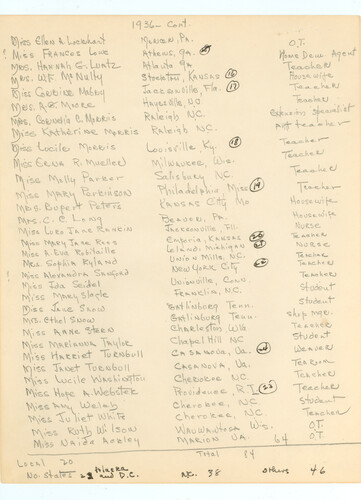 1936 - Cont.
Miss Ellen A. Lockhart Marion, Pa. O.T.
Miss Frances Love Athens, Ga. Home Dem. Agent
Mrs. Hannah G. Lontz Atlanta Ga Teacher
Mrs. W.F. McNully Stockton, Kansas 16 Housewife
Miss Gertrine Maloy Jacksonville, Fla. 17 Teacher
Mrs. A.G. Moore Hayesville, NC Teacher
Mrs. Cornelia C. Morris Raleigh N.C. Extension Specialist
Miss Katherine Morris Raleigh N.C. Art Teacher
Miss Lucile Morris Louisville Ky. 18 Teacher
Miss Erna R. Mueller Milwaukee, Wis. Teacher
Miss Molly Parker Salisbury NC Teacher
Miss Mary Perkinson Philadelphia Miss 19 Teacher
Mrs. Rupert Peters Kansas City Mo Housewife
Mrs. C. E. Lang Beaden, Pa. Housewife
Miss Lora Jane Rankin Jacksonville, Ill. Nurse
Miss Mary Jane Ross Emporia, Kansas 20 Teacher
Miss A. Eva Robitaille Leland, Michigan 21 Nurse
Mrs. Sophia Ryland Union Mills, NC. Teacher
Miss Alexandra Sanford New York City 22 Teacher
Miss Ida Seidel Unionville, Conn. Teacher
Miss Mary Slagle Franklin, N.C. Student
Miss Jane Snow Gatlinburg Tenn. Student
Mrs. Ethel Snow Gatlinburg Tenn. Shop Mgr.
Miss Anne Steen Charleston, WVa Teacher
Miss Marianna Taylor Chapel Hill NC Student
Miss Harriet Turnbull Casanova, Va. Weaver
Miss Janet Turnbull Casanova, Va. Teacher
Miss Lucile Washington Cherokee NC Teacher
Miss Hope A. Webster Providence, R.I. 25 Teacher
Miss Amy Welch Cherokee, N.C. Student
Miss Juliet White Cherokee, N.C. Teacher
Miss Ruth Wilson Wauwautosa Wis. O.T.
Miss Naida Ackley Marion Va. 64 O.T.
Total 84
Local 20
No. States 25 Alaska and D.C. NC. 38 Others 46